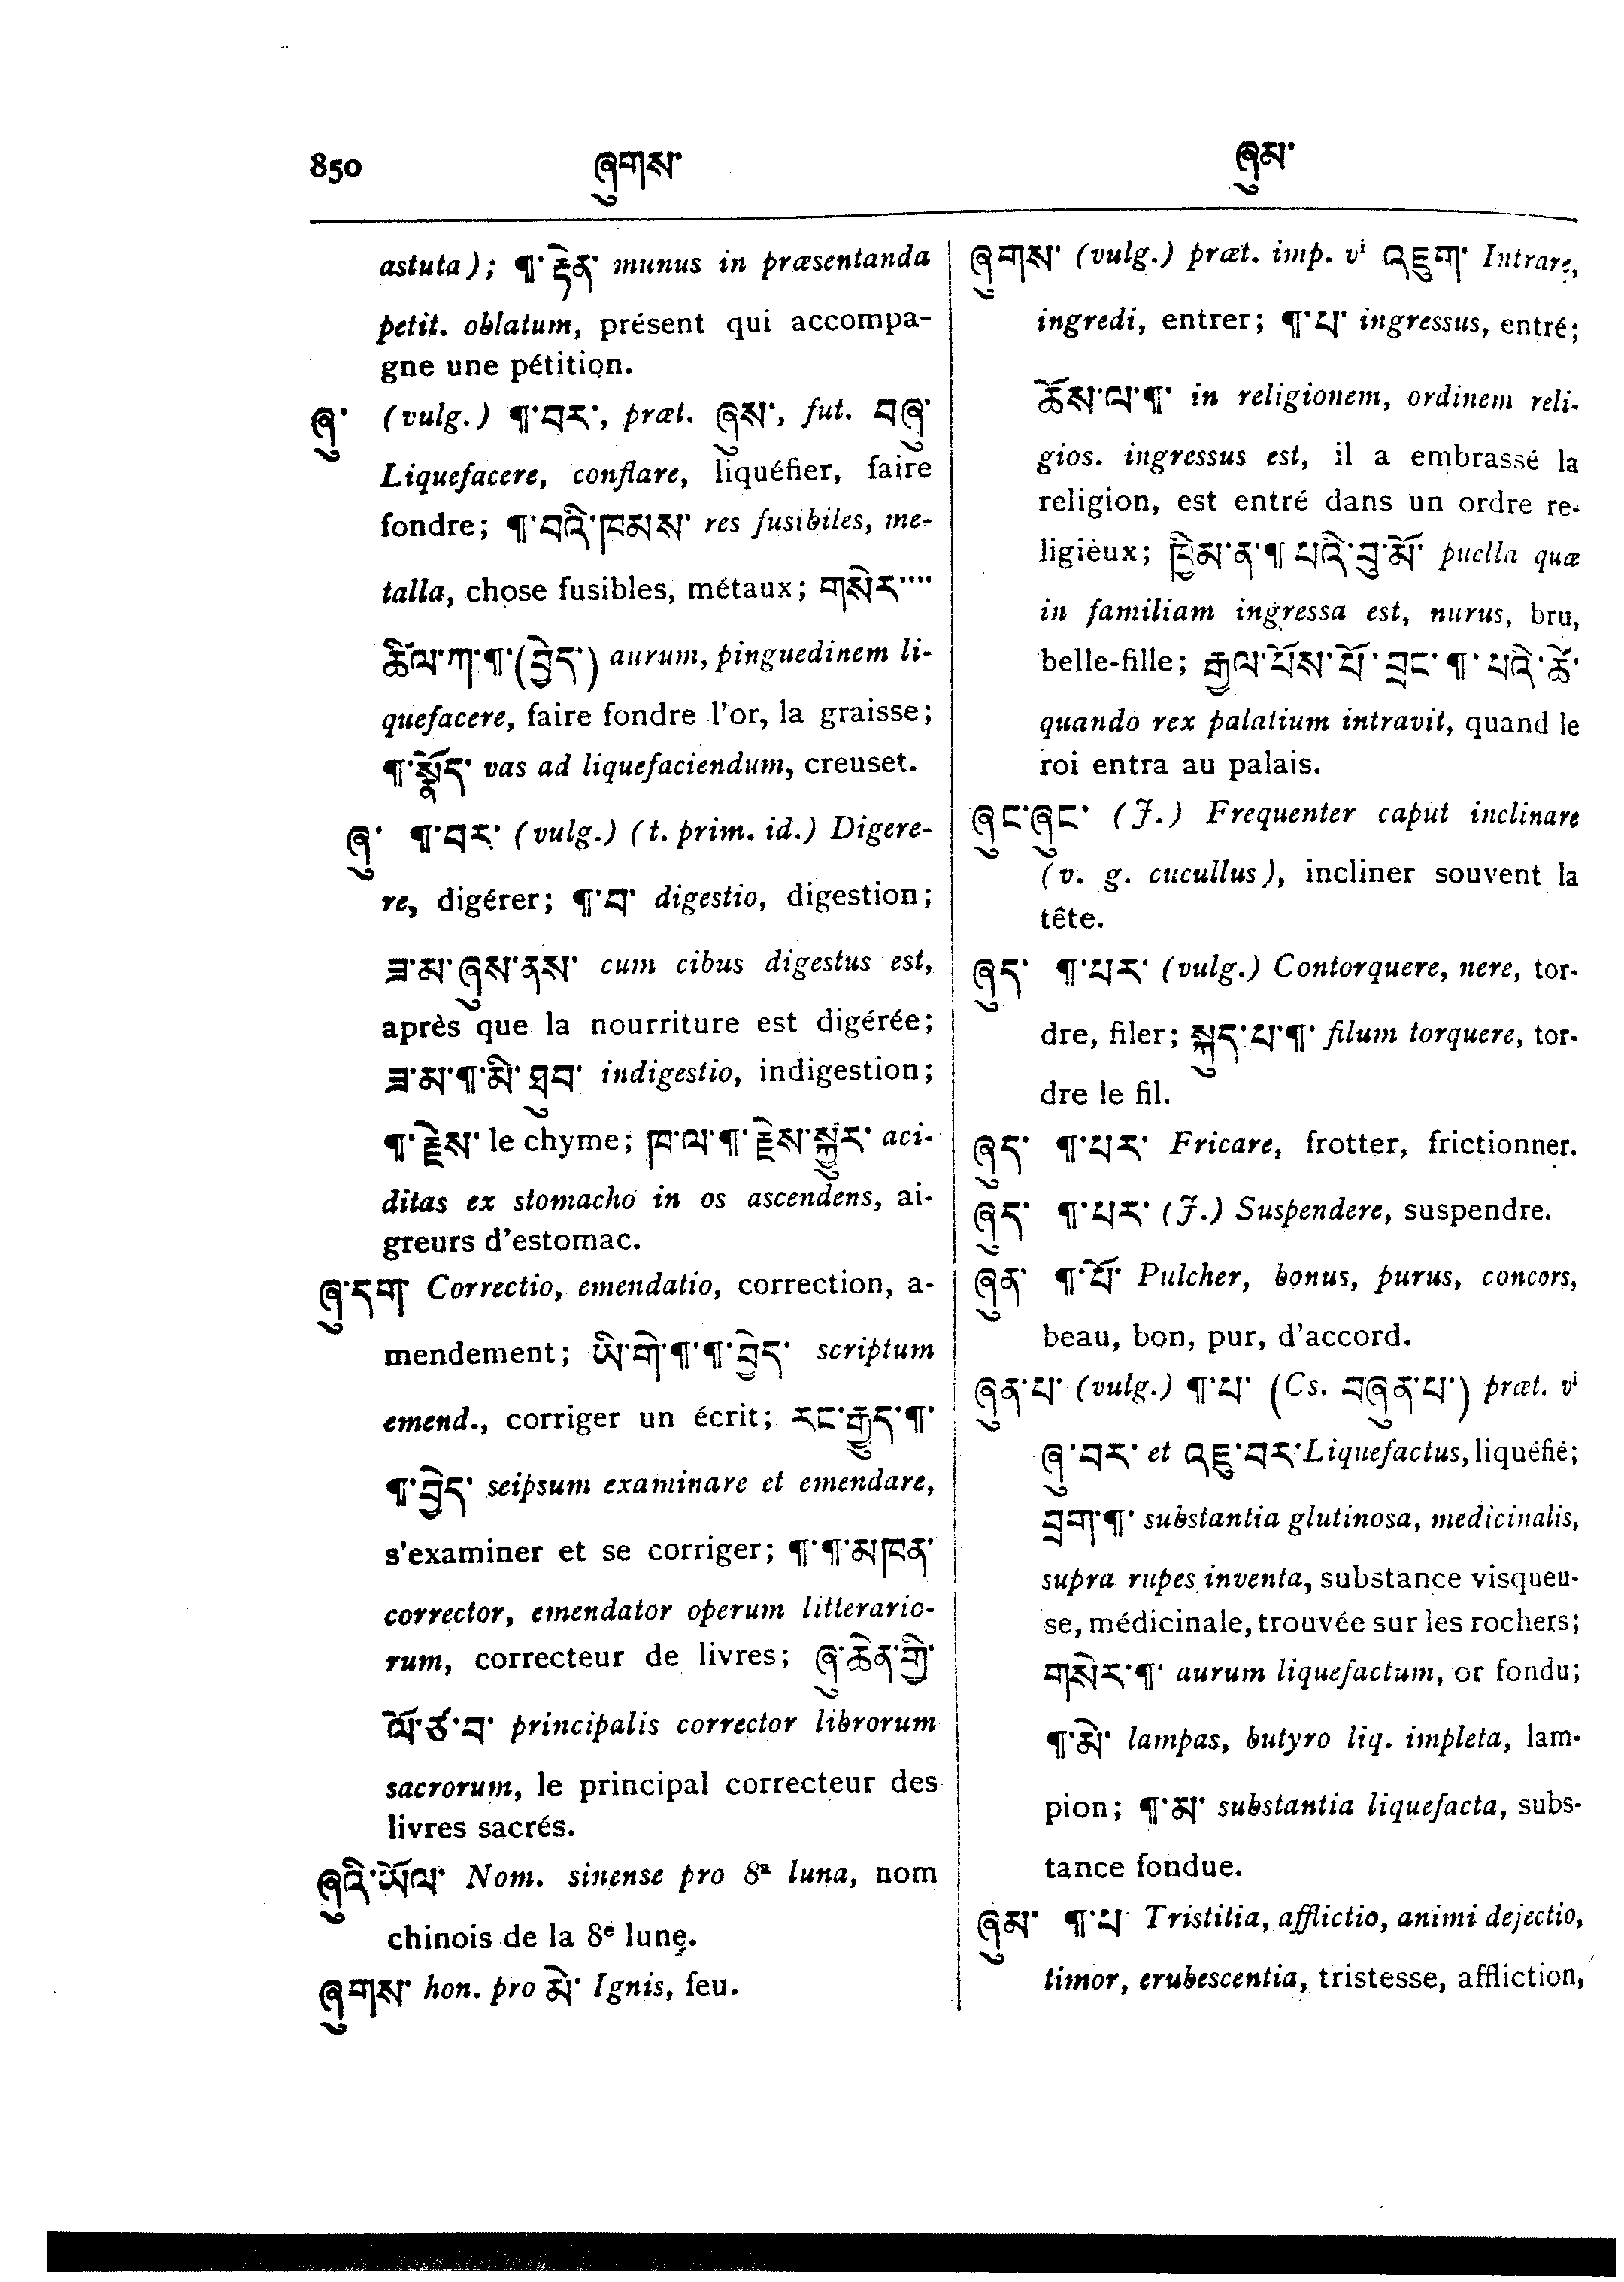 850 ཞུགས་ ཞུམ་
astuta); ¶་རྟེན་ munus in præsentanda
petit. oblatum, présent qui accompa-
gne une pétition.
ཞུ་ (vulg.) ¶་བར་, præt. ཞུས་, fut. བཞུ་
Liquefacere, conflare, liquéfier, faire
fondre; ¶་བའི་ཁམས་ res fusibiles, me-
talla, chose fusibles, métaux; གསེར་....
ཚིལ་ཀ་¶་(བྱེད་) aurum, pinguedinem li-
quefacere, faire fondre l'or, la graisse;
¶་སྣོད་ vas ad liquefaciendum, creuset.
ཞུ་ ¶་བར་ (vulg.) (t. prim. id.) Digere-
re, digérer; ¶་བ་ digestio, digestion;
ཟ་མ་ཞུས་ནས་ cum cibus digestus est,
après que la nourriture est digérée;
ཟ་མ་¶་མི་ཐུབ་ indigestio, indigestion;
¶་རྗེས་ le chyme; ཁ་ལ་¶་རྗེས་སྐྱུར་ aci-
ditas ex stomacho in os ascendens, ai-
greurs d'estomac.
ཞུ་དག་ Correctio, emendatio, correction, a-
mendement; ཡི་གེ་¶་¶་བྱེད་ scriptum
emend., corriger un écrit; རང་རྒྱུད་¶་
¶་བྱེད་ seipsum examinare et emendare,
s'examiner et se corriger; ¶་¶་མཁན་
corrector, emendator operum litterario-
rum, correcteur de livres; ཞུ་ཆེན་གྱི་
ལོ་ཙ་བ་ principalis corrector librorum
sacrorum, le principal correcteur des
livres sacrés.
ཞུའི་ཡོལ་ Nom. sinense pro 8ª luna, nom
chinois de la 8ᵉ lune.
ཞུགས་ hon. pro མེ་ Ignis, feu.
ཞུགས་ (vulg.) præt. imp. vⁱ འཇུག་ Intrare,
ingredi, entrer; ¶་པ་ ingressus, entré;
ཆོས་ལ་¶་ in religionem, ordinem reli-
gios. ingressus est, il a embrassé la
religion, est entré dans un ordre re-
ligieux; ཁྱིམ་ན་¶་པའི་བུ་མོ་ puella quæ
in familiam ingressa est, nurus, bru,
belle-fille; རྒྱལ་པོས་པོ་བྲང་¶་པའི་ཚེ་
quando rex palatium intravit, quand le
roi entra au palais.
ཞུང་ཞུང་ (J.) Frequenter caput inclinare
(v. g. cucullus), incliner souvent la
tête.
ཞུད་ ¶་པར་ (vulg.) Contorquere, nere, tor-
dre, filer; སྐུད་པ་¶་ filum torquere, tor-
dre le fil.
ཞུད་ ¶་པར་ Fricare, frotter, frictionner.
ཞུད་ ¶་པར་ (J.) Suspendere, suspendre.
ཞུན་ ¶་པོ་ Pulcher, bonus, purus, concors,
beau, bon, pur, d'accord.
ཞུན་པ་ (vulg.) ¶་པ་ (Cs. བཞུན་པ་) præt. vⁱ
ཞུ་བར་ et འཇུ་བར་ Liquefactus, liquéfié;
བྲག་¶་ substantia glutinosa, medicinalis,
supra rupes inventa, substance visqueu-
se, médicinale, trouvée sur les rochers;
གསེར་¶་ aurum liquefactum, or fondu;
¶་མེ་ lampas, butyro liq. impleta, lam-
pion; ¶་མ་ substantia liquefacta, subs-
tance fondue.
ཞུམ་ ¶་པ་ Tristitia, afflictio, animi dejectio,
timor, erubescentia, tristesse, affliction,